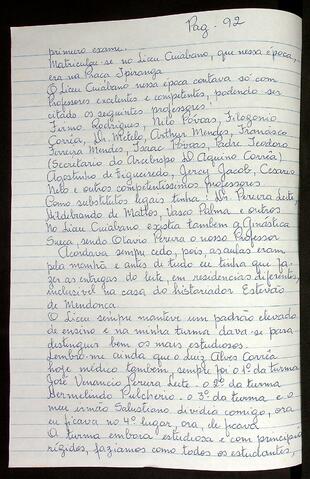 Pag - 92
primeiro exame.
Matriculou-se no Liceu Cuiabano, que nessa época,
era na Praça Ipiranga
O Liceu Cuiabano nessa época contava só com
Professores excelentes e competentes, podendo ser
citado os seguintes professores:
Firmo Rodrigues, Nilo Póvoas, Filogonio
Corrêa, Dr. Metelo, Arthur Mendes, Francisco
Ferreira Mendes, Isaac Póvoas, Padre Teodoro
(Secretario do Arcebispo D Aquino Corrêa)
Agostinho de Figueiredo, Jercy Jacob, Cesario
Neto e outros competentissimos professores
Como substitutos legais tinha: Dr. Pereira Leite,
Hildebrando de Mattos, Vasco Palma e outros
No Liceu Cuiabano existia tambem a Ginástica
Sueca, sendo Otavio Pereira o nosso Professor
Acordava sempre cedo, pois as aulas eram
pela manhã e antes di tudo eu tinha que fa-
zer as entregas do leite, em residencias diferentes,
inclusivel na casa do historiador Estevão
de Mendonca
O Liceu sempre manteve um padrão elevado
de ensino e na minha turma dava-se para
distinguir bem os mais estudiosos.
Lembro-me ainda que o Luiz Alves Corrêa
hoje médico tambem, sempre foi o 1º da turma
José Venancio Pereira Leite - o 2º da turma
Hermelindo Pulcherio - o 3º da turma e o
meu irmão Salustiano dividia comigo, ora
eu ficava no 4º lugar, ora, ele ficava
A turma embora estudiosa e com principios
rigidos, faziamos como todos os estudantes,